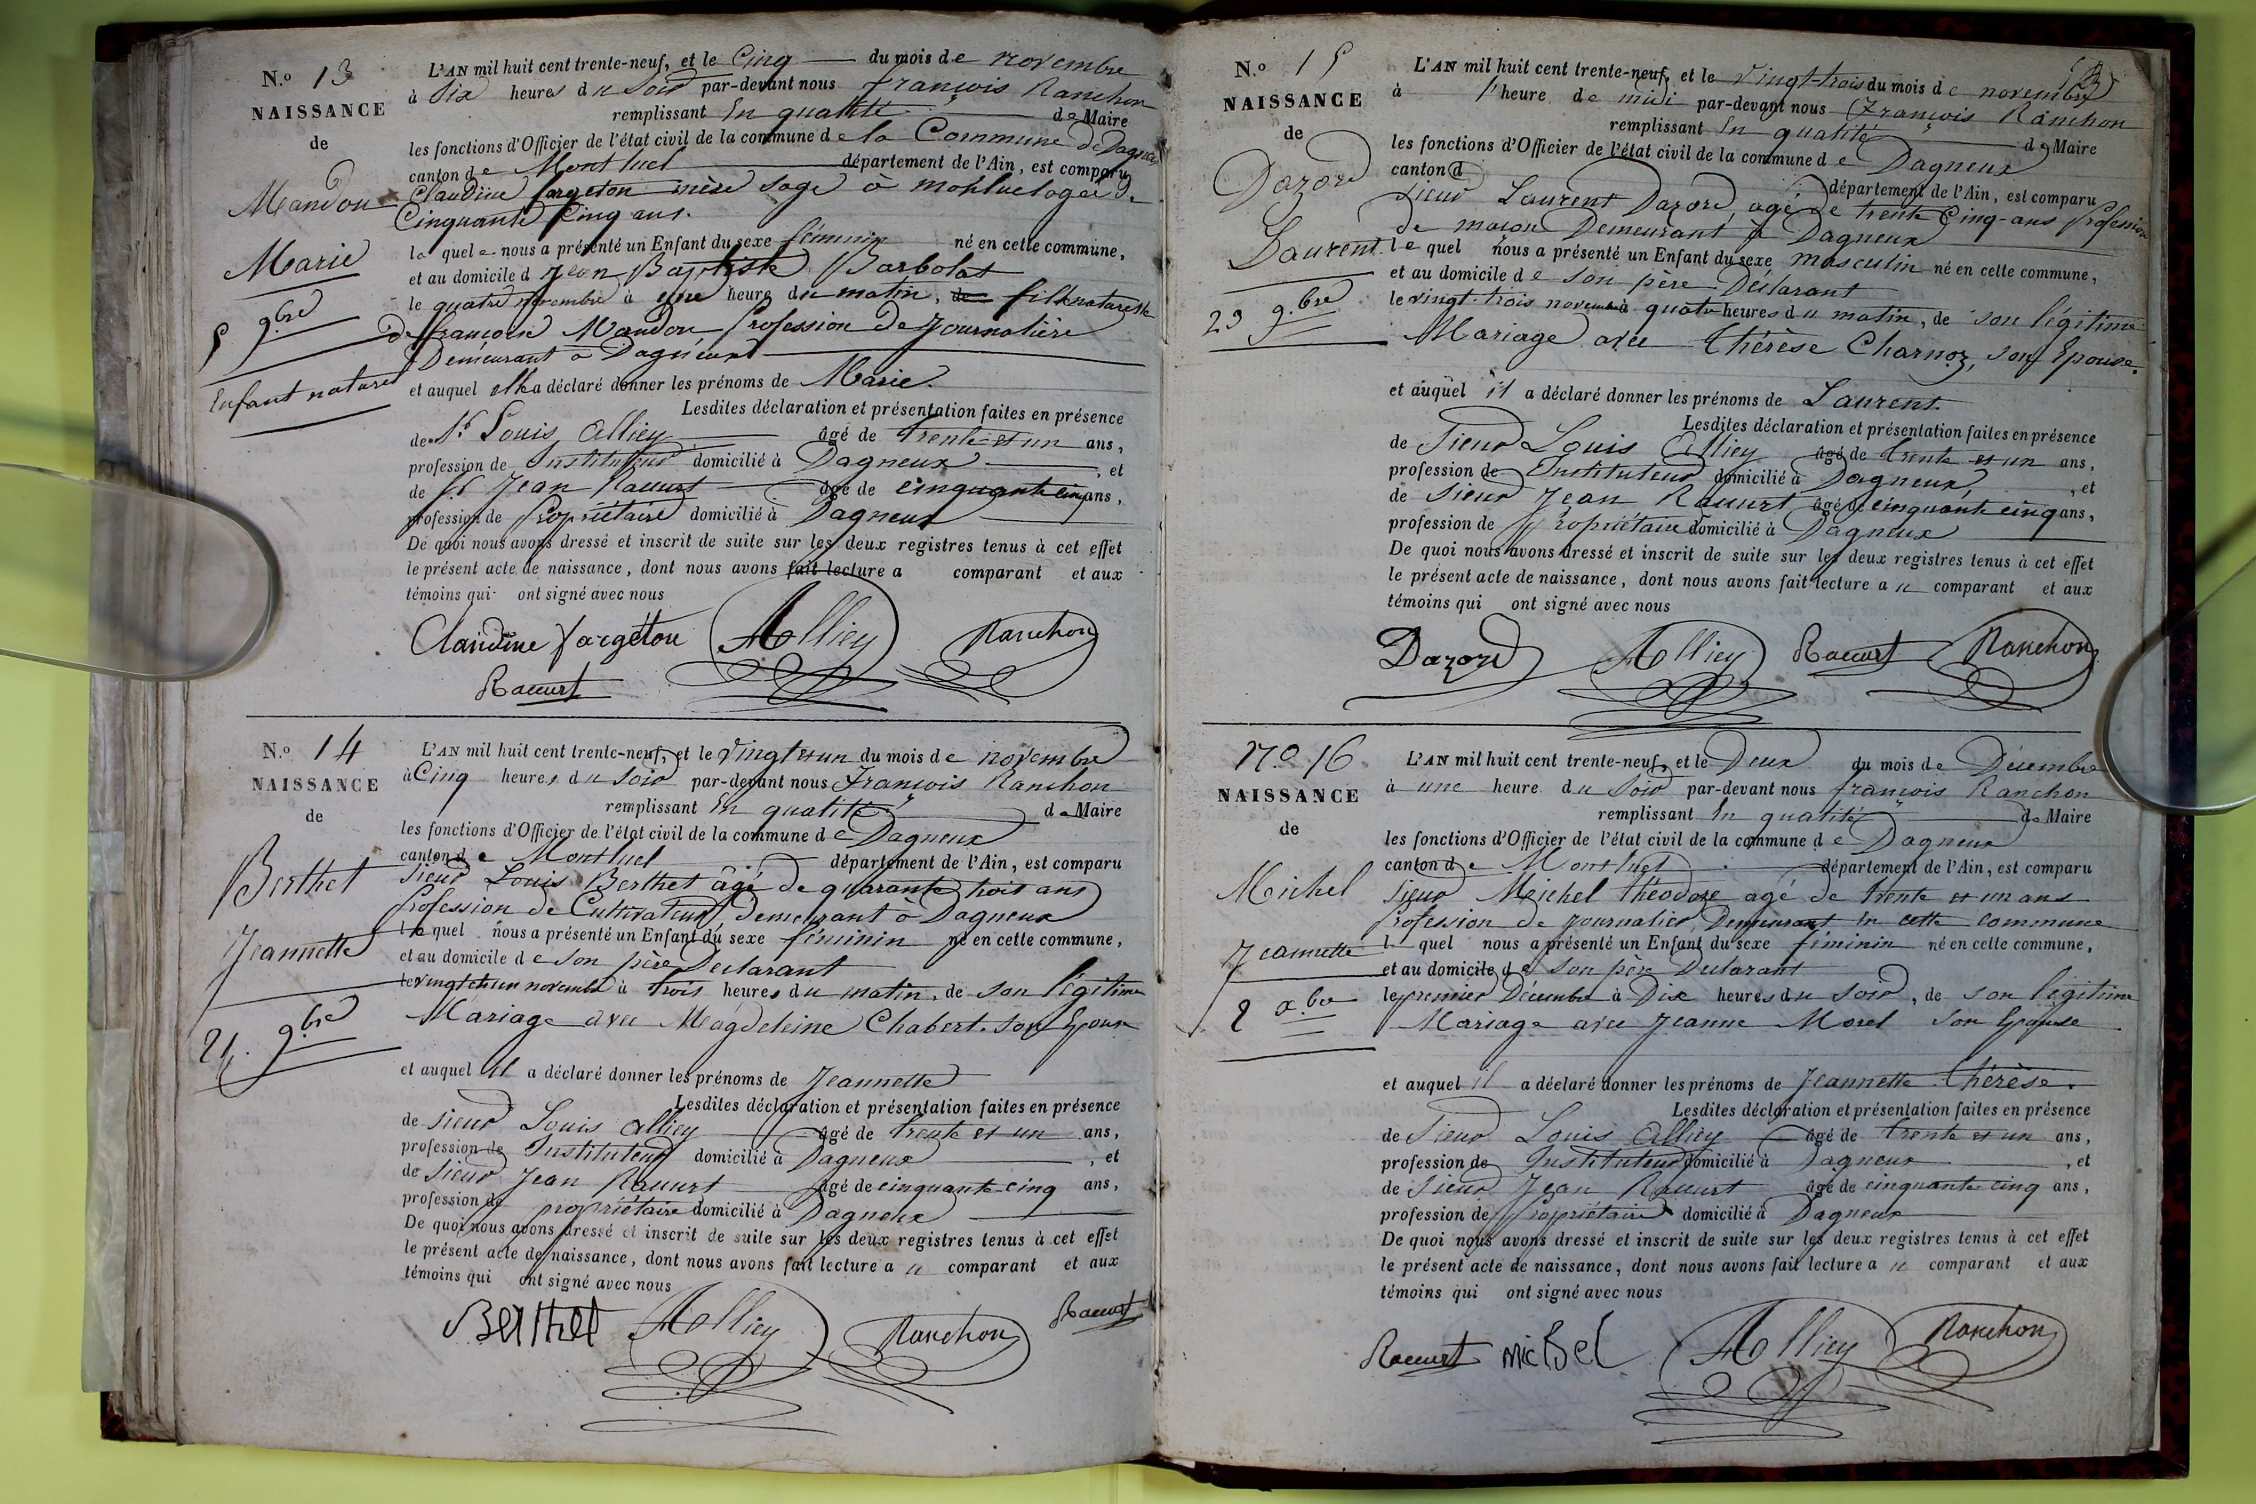 N.o 13
NAISSANCE
de
Mandon
Marie
5 9.bre
Enfant naturel
L'AN mil huit cent trente-neuf, et le Cinq du mois de novembre
à Six heures du Soir par-devant nous françois Ranchon
remplissant En qualité de Maire
les fonctions d'Officier de l'état civil de la commune de la Commune de Dagneux
canton de Montluel département de l'Ain, est comparu
Claudine fargeton mère sage à montluel agée de
Cinquante Cinq ans.
la quelle nous a présenté un Enfant du sexe féminin né en cette commune,
et au domicile d Jean Baptiste Barbolat
le quatre novembre à une heure du matin, de fille naturelle
de françoise Mandon profession de Journalière
Demeurant à Dagneux
et auquel elle a déclaré donner les prénoms de Marie.
Lesdites déclaration et présentation faites en présence
de Sr Louis Alliey âgé de trente et un ans,
profession de Instituteur domicilié à Dagneux, et
de Sr Jean Raccurt âgé de cinquante cinq ans,
profession de propriétaire domicilié à Dagneux
De quoi nous avons dressé et inscrit de suite sur les deux registres tenus à cet effet
le présent acte de naissance, dont nous avons fait lecture a comparant et aux
témoins qui ont signé avec nous
Claudine fargéton Alliey Ranchon
Raccurt
N.o 14
NAISSANCE
de
Berthet
Jeannette
21. 9.bre
L'AN mil huit cent trente-neuf, et le vingt et un du mois de novembre
à Cinq heures du soir par-devant nous François Ranchon
remplissant En qualité de Maire
les fonctions d'Officier de l'état civil de la commune de Dagneux
canton de Montluel département de l'Ain, est comparu
Sieur Louis Berthet âgé de quarante trois ans
profession de Cultivateur demeurant à Dagneux
le quel nous a présenté un Enfant du sexe féminin né en cette commune,
et au domicile de son père Déclarant
le vingt et un novembre à trois heures du matin, de son légitime
Mariage avec Magdeleine Chabert son Epouse
et auquel il a déclaré donner les prénoms de Jeannette
Lesdites déclaration et présentation faites en présence
de Sieur Louis Alliey âgé de trente et un ans,
profession de Instituteur domicilié à Dagneux, et
de Sieur Jean Raccurt âgé de cinquante cinq ans,
profession de propriétaire domicilié à Dagneux
De quoi nous avons dressé et inscrit de suite sur les deux registres tenus à cet effet
le présent acte de naissance, dont nous avons fait lecture a u comparant et aux
témoins qui ont signé avec nous
Berthet Alliey Ranchon Raccurt
N.o 15
NAISSANCE
de
Dazord
Laurent
23 9.bre
L'AN mil huit cent trente-neuf, et le vingt-trois du mois de novembre
à l'heure de midi par-devant nous François Ranchon
remplissant En qualité de Maire
les fonctions d'Officier de l'état civil de la commune de Dagneux
canton d département de l'Ain, est comparu
Sieur Laurent Dazord agé de trente Cinq ans profession
de maçon Demeurant à Dagneux
le quel nous a présenté un Enfant du sexe masculin né en cette commune,
et au domicile de son père Déclarant
le vingt-trois novembre à quatre heures du matin, de son légitime
Mariage avec Thérèse Charnoz, son Epouse.
et auquel il a déclaré donner les prénoms de Laurent
Lesdites déclaration et présentation faites en présence
de Sieur Louis Alliey âgé de trente et un ans,
profession de Instituteur domicilié à Dagneux, et
de Sieur Jean Raccurt âgé de cinquante cinq ans,
profession de propriétaire domicilié à Dagneux
De quoi nous avons dressé et inscrit de suite sur les deux registres tenus à cet effet
le présent acte de naissance, dont nous avons fait lecture a u comparant et aux
témoins qui ont signé avec nous
Dazord Alliey Raccurt Ranchon
N.o 16
NAISSANCE
de
Michel
Jeannette
2 x.bre
L'AN mil huit cent trente-neuf, et le Deux du mois de Décembre
à une heure du Soir par-devant nous françois Ranchon
remplissant En qualité de Maire
les fonctions d'Officier de l'état civil de la commune de Dagneux
canton de Montluel département de l'Ain, est comparu
Sieur Michel théodore agé de trente et un ans
profession de journalier Demeurant en cette commune
l quel nous a présenté un Enfant du sexe féminin né en cette commune,
et au domicile de son père Déclarant
le premier Décembre à Dix heures du soir, de son légitime
Mariage avec Jeanne Morel son Epouse
et auquel il a déclaré donner les prénoms de Jeannette Thérèse.
Lesdites déclaration et présentation faites en présence
de Sieur Louis Alliey âgé de trente et un ans,
profession de Instituteur domicilié à Dagneux, et
de Sieur Jean Raccurt âgé de cinquante cinq ans,
profession de propriétaire domicilié à Dagneux
De quoi nous avons dressé et inscrit de suite sur les deux registres tenus à cet effet
le présent acte de naissance, dont nous avons fait lecture a u comparant et aux
témoins qui ont signé avec nous
Raccurt michel Alliey Ranchon